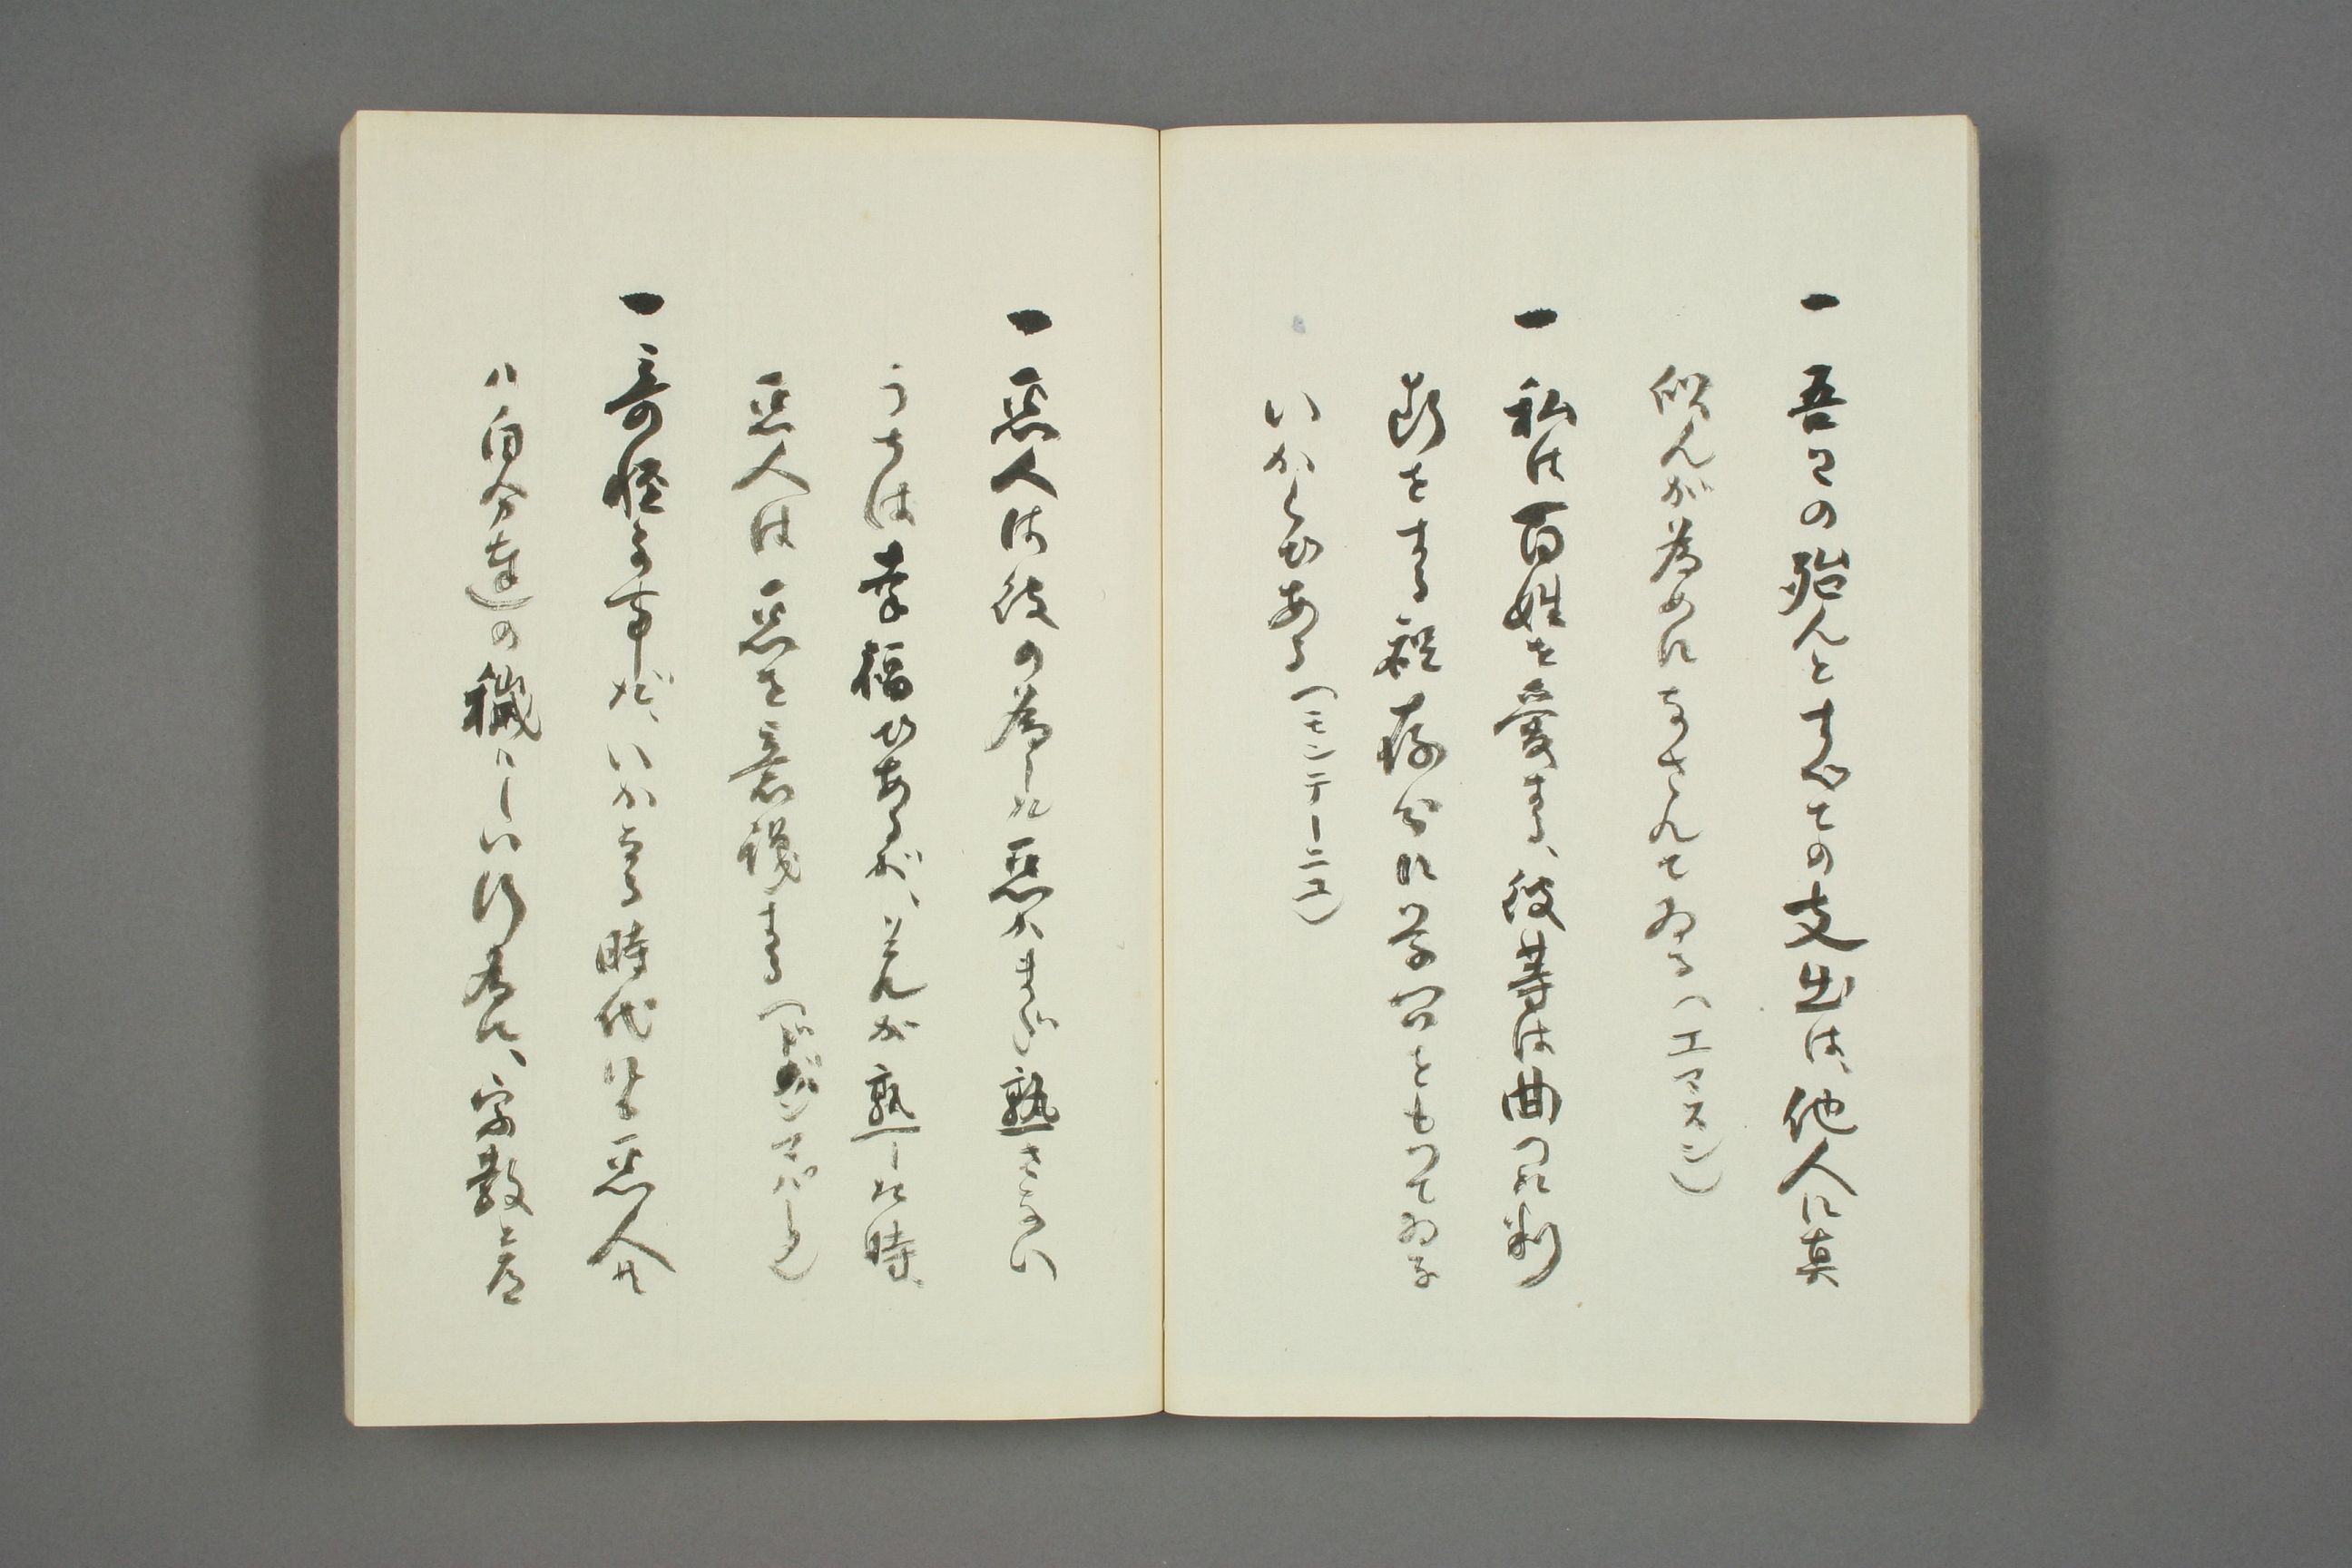 一 吾々の殆んとすべての支出は、他人に真
似んが為めになされてゐる（エマスン）
一 私は百姓を愛する、彼等は曲つた判
断をする程存分に学問をもつてゐな
いからである（モンテーニユ）
一 悪人は彼の為した悪がまだ熟さない
うちは幸福であるが、それが熟した時、
悪人は悪を意識する（ ）
一 奇怪な事だ、いかなる時代にも悪人共
ハ自分達の穢らしい行為に、宗教と道